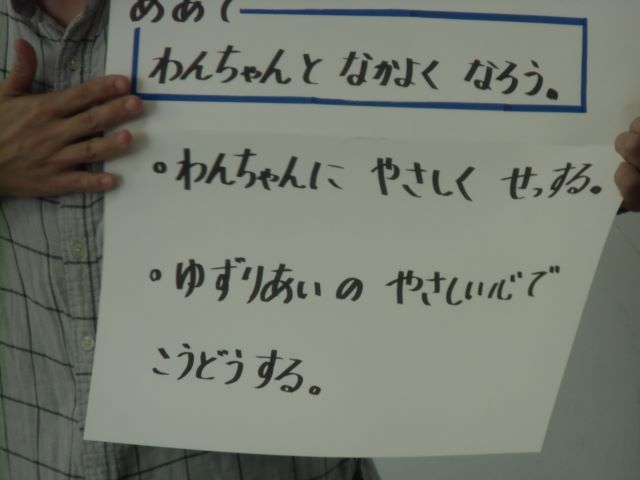 めあて
わんちゃんと なかよく なろう。
・わんちゃんに やさしく せっする。
・ゆずりあいの やさしい心で
こうどうする。